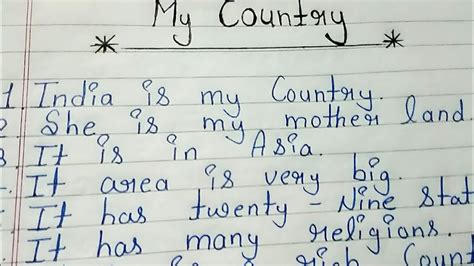 My Country
1. India is my Country.
2. She is my mother land.
3. It is in Asia.
It area is very big.
It has twenty - Nine Stat
It has many religions.
rich Count